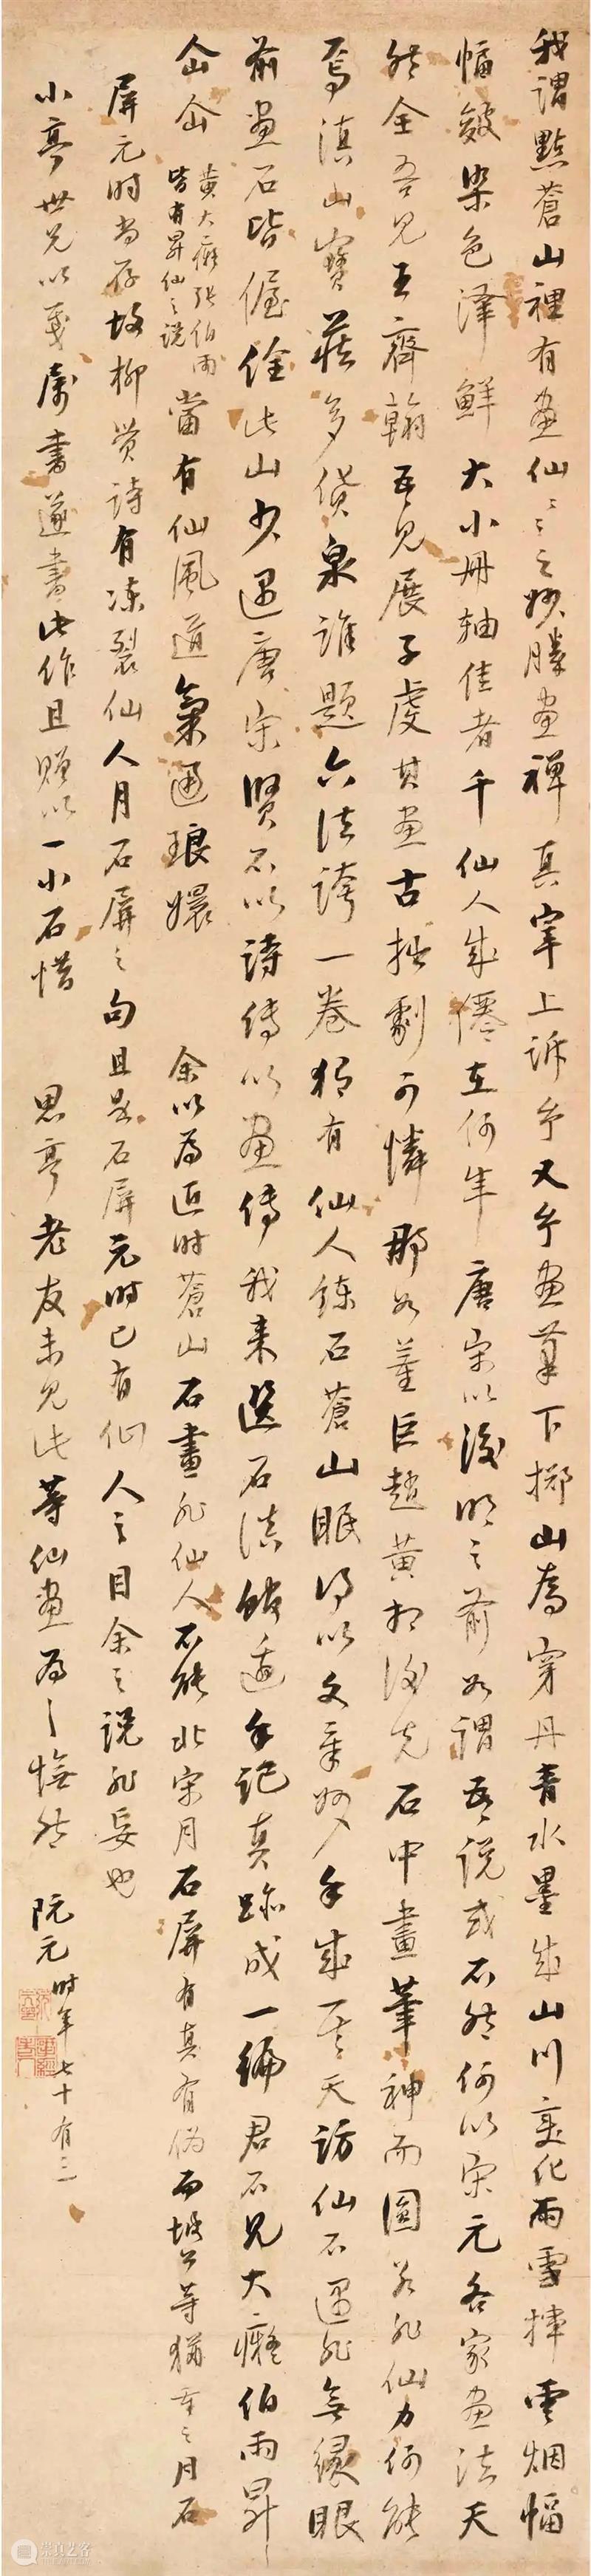 我謂點蒼山裡有畫仙仙之妙勝畫禪真宰上訴乎又乎畫筆下擲山為穿丹青水墨成山川變化雨雪揮雲烟幅
幅皴染色澤鮮大小冊軸佳者千仙人成僊在何年唐宋以後明之前如謂吾說或不然何以宋元各家畫法天
然全吾見王齊翰吾見展子虔其畫古拙劇可憐那如董巨趙黃相後先石中畫筆神而圓若非仙力何能
焉滇山寶藏多貨泉誰題六法誇一卷猶有仙人鍊石蒼山眠得以文章妙手成一天訪仙不遇非無緣眼
前畫石皆偓佺此山少遇唐宋賢不以詩傳以畫傳我來選石滇能適手記真跡成一編君不見大癡伯雨昇
仚仚黃大癡張伯雨皆有昇仙之說當有仙風道氣通琅嬛余以為近時蒼山石畫非仙人不能北宋月石屏有真有偽而坡公等猶重之月石
屏元時尚存故柳貫詩有凍裂仙人月石屏之句且是石屏元時已有仙人之目余之說非妄也
小亭世兄以箋屬書遂書此作且贈以一小石惜思亭老友未見此等仙畫為之憮然阮元時年七十有三
崇真艺客